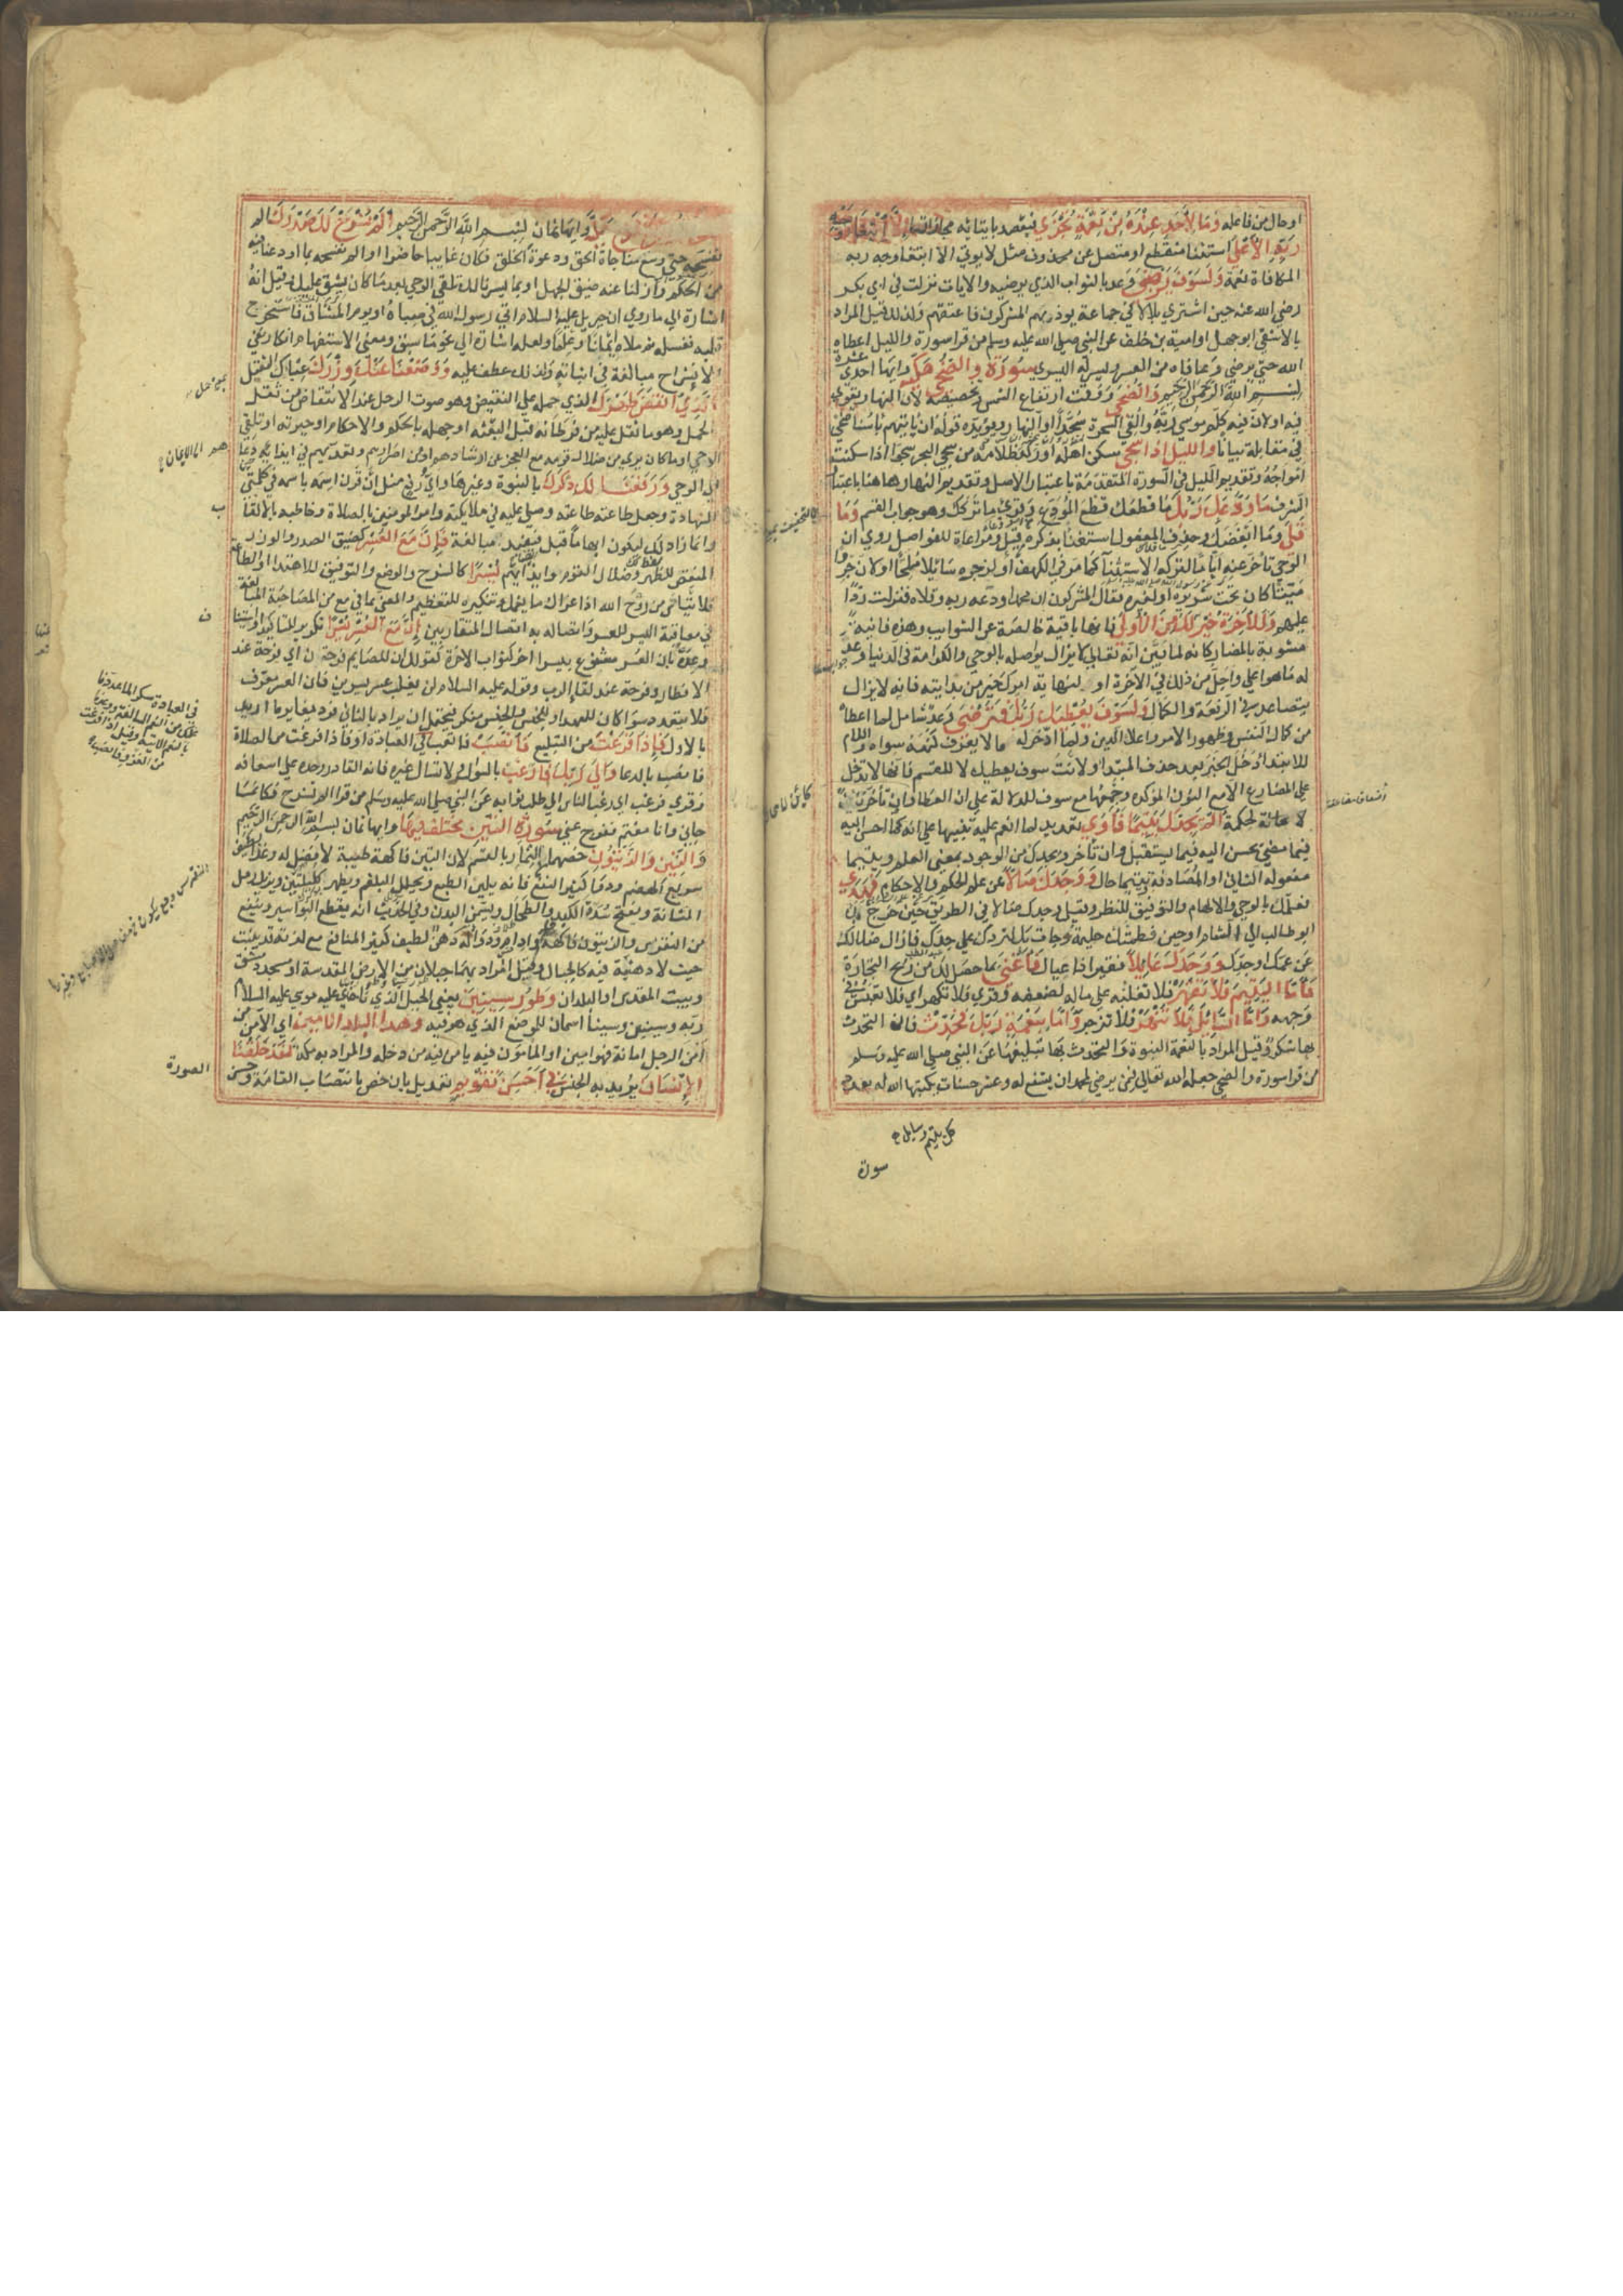 او حال من فاعله وَمَا لِأَحَدٍ عِنْدَهُ مِنْ نِعْمَةٍ تُجْزَي فيقصد بايتائه مجازاتها إلا ابتغاء وجه
ربه الأعلى استثنا منقطع او متصل عن محذوف مثل لا يوتي الا ابتغا وجه ربه
المكافاة نعمة ولسوف يرضى وعد بالثواب الذي يرضيه والايات نزلت في ابي بكر
رضي الله عنه حين اشتري بلالا في جماعة يوذيهم المشركون فاعتقهم ولذلك قيل المراد
بالاشقي ابو جهل او امية بن خلف عن النبي صلي الله عليه وسلم من قرا سورة والليل اعطاه
الله حتي يرضي وعافاه من العسر ويسر له اليسري سورة والضحى مكية وايها احدي عشرة
بسم الله الرحمن الرحيم والضحى ووقت ارتفاع الشمس وتخصيصه لان النهار يقوي
فيه او لان فيه كلم موسي ربه والقي السحرة سجدا او النهار ويويده قوله ان ياتيهم باسنا ضحي
في مقابلة بياتا والليل اذا سجى سكن اهله او ركد ظلامه من سجي البحر سجوا اذا سكنت
امواجه وتقديم الليل في السورة المتقدمة باعتبار الاصل وتقديم النهار ههنا باعتبار
الشرف ما ودعك ربك ما قطعك قطع المودع وقري ما تركك وهو جواب القسم وما
قلى وما ابغضك وحذف المفعول استغنا بذكره قبل ومراعاة للفواصل روي ان
الوحي تاخر عنه اياما لتركه الاستثنا كما مر في الكهف او لزجره سائلا ملحا او لان جروا
ميتا كان تحت سريره او لغيره فقال المشركون ان محمدا ودعه ربه وقلاه فنزلت ردا
عليهم وللآخرة خير لك من الأولى فانها باقية خالصة عن الشوايب وهذه فانية
مشوبة بالمضار كانه لما بين انه تعالي لا يزال يواصله بالوحي والكرامة في الدنيا وعد
له ما هو اعلي واجل من ذلك في الاخرة او لنهاية امرك خير من بدايته فانه لا يزال
يتصاعد في الرفعة والكمال ولسوف يعطيك ربك فترضى وعد شامل لما اعطاه
من كمال النفس وظهور الامر واعلا الدين ولما ادخر له مما لا يعرف كنهه سواه واللام
للابتدا دخل الخبر بعد حذف المبتدا ولانت سوف يعطيك لا للقسم فانها لا تدخل
علي المضارع الا مع النون الموكده وجمعها مع سوف للدلالة علي ان العطا وان تاخر كائن
لا محالة لحكمة الم يجدك يتيما فآوى تعديد لما انعم عليه تنبيها علي انه كما احسن اليه
فيما مضي يحسن اليه فيما يستقبل وان تاخر ويجدك من الوجود بمعني العلم ويتيما
مفعوله الثاني او المصادفة ويتيما حال ووجدك ضالا عن علم الحكم والاحكام فهدى
فعلمك بالوحي والالهام والتوفيق للنظر وقيل وجدك ضالا في الطريق حين خرج بك
ابو طالب الي الشام او حين فطمتك حليمة وجات بك لتردك علي جدك فازال ضلالك
عن عمك او جدك ووجدك عائلا فقيرا ذا عيال فأغنى بما حصل لك من ربح التجارة
فأما اليتيم فلا تقهر فلا تغلبه علي ماله لضعفه وقري فلا تكهر اي فلا تعبس في
وجهه وأما السائل فلا تنهر فلا تزجر وأما بنعمة ربك فحدث فان التحدث
بها شكر وقيل المراد بالنعمة النبوة والتحدث بها تبليغها عن النبي صلي الله عليه وسلم
من قرا سورة والضحي جعله الله تعالي فيمن يرضي لمحمد ان يشفع له وعشر حسنات يكتبها الله له بعدد
كل يتيم وسايل
سورة
وايها ثمان بسم الله الرحمن الرحيم ألم نشرح لك صدرك الم
نفسحه حتي وسع مناجاة الحق ودعوة الخلق فكان غايبا حاضرا او الم نفسحه بما اودعنا فيه
من الحكم وازلنا عنه ضيق الجهل او بما يسرنا لك تلقي الوحي بعد ما كان يشق عليك وقيل انه
اشارة الي ما روي ان جبريل عليه السلام اتي رسول الله في صباه او يوم الميثاق فاستخرج
قلبه فغسله ثم ملاه ايمانا وعلما ولعله اشارة الي نحو ما سبق ومعني الاستفهام انكار نفي
الانشراح مبالغة في اثباته ولذلك عطف عليه ووضعنا عنك وزرك عباك الثقيل
الذي أنقض ظهرك الذي حمله علي النقيض وهو صوت الرحل عند الانتقاض من ثقل
الحمل وهو ما ثقل عليه من فرطاته قبل البعثه او جهله بالحكم والاحكام او حيرته او تلقي
الوحي او ما كان يري من ضلال قومه مع العجز عن ارشادهم او من اصرارهم وتعديهم في ايذايه لما دعا
الي الوحي ورفعنا لك ذكرك بالنبوة وغيرها واي رفع مثل ان قرن اسمه باسمه في كلمتي
الشهادة وجعل طاعته طاعته وصلي عليه في ملايكته وامر المومنين بالصلاة وخاطبه بالالقا
وانما زاد لك ليكون ابهاما قبل فيفيد مبالغة فإن مع العسر كضيق الصدر والوزر
المنقض للظهر وضلال القوم وايذايهم يسرا كالشرح والوضع والتوفيق للاهتدا والطاعة
فلا تياس من روح الله اذا عراك ما يغمك وتنكيره للتعظيم والمعني بما في مع من المصاحبة المبالغة
في معاقبة اليسر للعسر واتصاله به اتصال المتقاربين إن مع العسر يسرا تكرير للتاكيد او استيناف
وعده بان العسر مشفوع بيسر اخر كثواب الاخرة كقولك ان للصايم فرحة اي فرحة عند
الافطار وفرحة عند لقا الرب وقوله عليه السلام لن يغلب عسر يسرين فان العسر معرف
فلا يتعدد سوا كان للعهد او للجنس واليسر منكر فيحتمل ان يراد بالثاني فرد يغاير ما اريد
بالاول فإذا فرغت من التبليغ فانصب فاتعب في العبادة او فاذا فرغت من الصلاة
فانصب بالدعا وإلى ربك فارغب بالسوال ولا تسال غيره فانه القادر وحده علي اسعافه
وقري فرغب اي رغب الناس الي طلب ثوابه عن النبي صلي الله عليه وسلم من قرا الم نشرح فكانما
جاني وانا مغتم ففرج عني سورة التين مختلف فيها وايها ثمان بسم الله الرحمن الرحيم
والتين والزيتون خصهما من الثمار بالقسم لان التين فاكهة طيبة لا فضل له وغذا لطيف
سريع الهضم ودوا كثير النفع فانه يلين الطبع ويحلل البلغم ويطهر الكليتين ويزيل رمل
المثانة ويفتح سدة الكبد والطحال ويسمن البدن وفي الحديث انه يقطع البواسير وينفع
من النقرس والزيتون فاكهة وادام ودوا وله دهن لطيف كثير المنافع مع انه قد ينبت
حيث لا دهنية فيه كالجبال وقيل المراد بهما جبلان من الارض المقدسة او مسجد دمشق
وبيت المقدس او البلدان وطور سينين يعني الجبل الذي ناجي عليه موسي عليه السلام
ربه وسينين وسينا اسمان للموضع الذي هو فيه وهذا البلد الامين اي الآمن من
امن الرجل امانة فهو امين او المامون فيه يامن فيه من دخله والمراد به مكة لقد خلقنا
الإنسان يريد به الجنس في أحسن تقويم تعديل بان خص بانتصاب القامة وحسن
الصورة